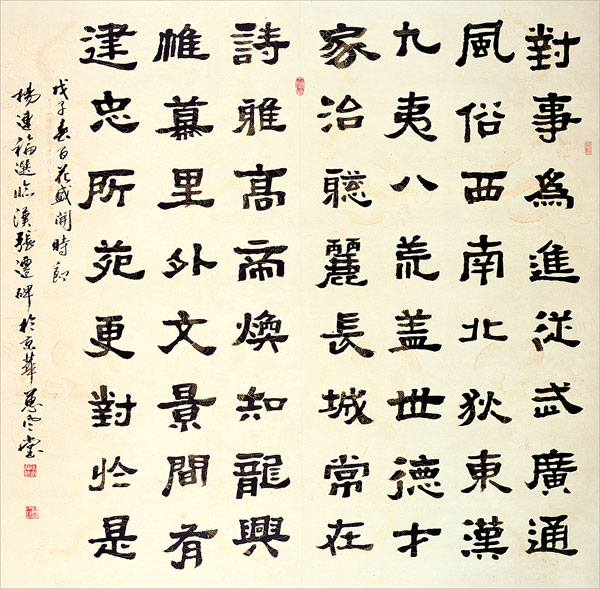 對事為進從武廣通
風俗西南北狄東漢
九夷八荒盖世德才
家治聽麗長城常在
詩雅高帝煥知龍興
帷幕里外文景間有
建忠所苑更對於是
戊子春百花盛開時節
楊連福選臨漢張遷碑於京華惠風堂